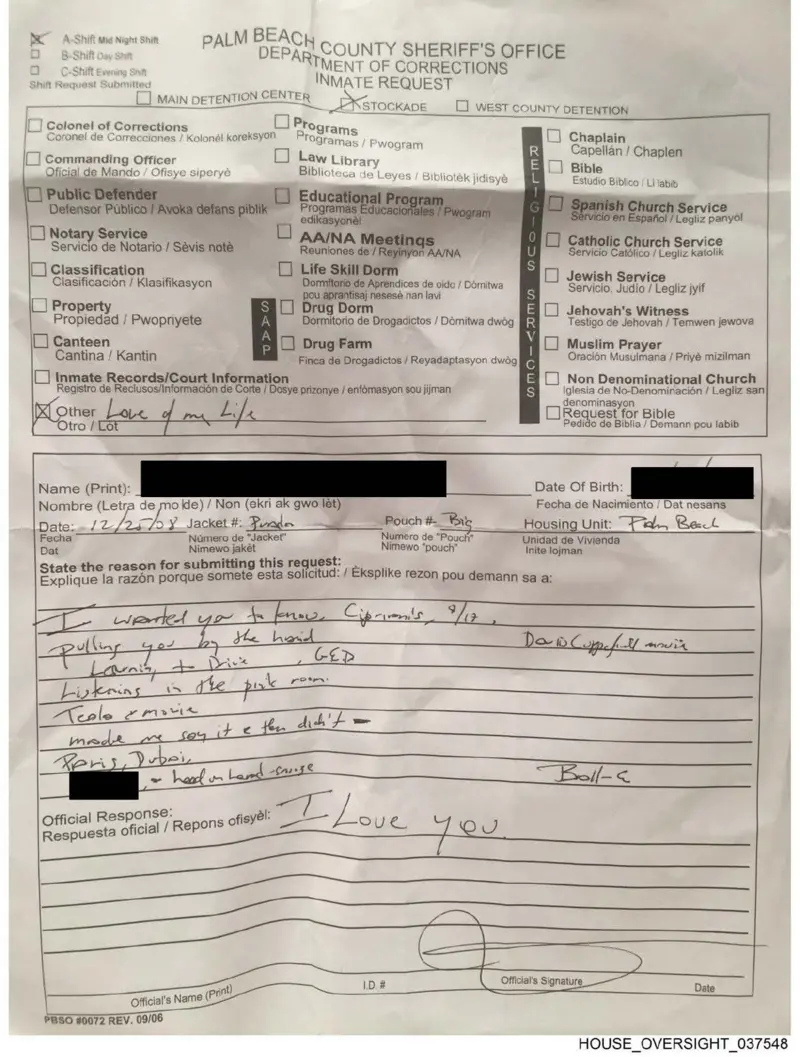 A-Shift Mid Night Shift
B-Shift Day Shift
C-Shift Evening Shift
Shift Request Submitted
PALM BEACH COUNTY SHERIFF'S OFFICE
DEPARTMENT OF CORRECTIONS
INMATE REQUEST
MAIN DETENTION CENTER STOCKADE WEST COUNTY DETENTION
Colonel of Corrections
Coronel de Correcciones / Kolonèl koreksyon
Commanding Officer
Oficial de Mando / Ofisye siperyè
Public Defender
Defensor Público / Avoka defans piblik
Notary Service
Servicio de Notario / Sèvis notè
Classification
Clasificación / Klasifikasyon
Property
Propiedad / Pwopriyete
Canteen
Cantina / Kantin
Inmate Records/Court Information
Registro de Reclusos/Información de Corte / Dosye prizonye / enfòmasyon sou jijman
Other Love of my Life
Otro / Lòt
Programs
Programas / Pwogram
Law Library
Biblioteca de Leyes / Bibliotèk jidisyè
Educational Program
Programas Educacionales / Pwogram
edikasyonèl
AA/NA Meetings
Reuniones de / Reyinyon AA/NA
SAAP
Life Skill Dorm
Dormitorio de Aprendices de oido / Dòmitwa
pou aprantisaj nesesè nan lavi
Drug Dorm
Dormitorio de Drogadictos / Dòmitwa dwòg
Drug Farm
Finca de Drogadictos / Reyadaptasyon dwòg
RELIGIOUS SERVICES
Chaplain
Capellán / Chaplen
Bible
Estudio Bíblico / Li labib
Spanish Church Service
Servicio en Español / Legliz panyòl
Catholic Church Service
Servicio Católico / Legliz katolik
Jewish Service
Servicio, Judío / Legliz jyif
Jehovah's Witness
Testigo de Jehovah / Temwen jewova
Muslim Prayer
Oración Musulmana / Priyè mizilman
Non Denominational Church
Iglesia de No-Denominación / Legliz san
denominasyon
Request for Bible
Pedido de Biblia / Demann pou labib
Name (Print):
Nombre (Letra de molde) / Non (ekri ak gwo lèt)
Date Of Birth:
Fecha de Nacimiento / Dat nesans
Date: 12/25/08 Jacket #: Pouch #- Big Housing Unit: Palm Beach
Fecha Número de "Jacket" Numero de "Pouch" Unidad de Vivienda
Dat Nimewo jakèt Nimewo "pouch" Inite lojman
State the reason for submitting this request:
Explique la razón porque somete esta solicitud: / Èksplike rezon pou demann sa a:
I wanted you to know, Cipriani's, 9/17,
pulling you by the hand David Copperfield movie
Learning to Drive, GED
Listening in the pink room.
movie
made me say it & then didn't -
Paris, Dubai,
head on hand
Official Response: I Love you.
Respuesta oficial / Repons ofisyèl:
Official's Name (Print) I.D. # Official's Signature Date
PBSO #0072 REV. 09/06
HOUSE_OVERSIGHT_037548